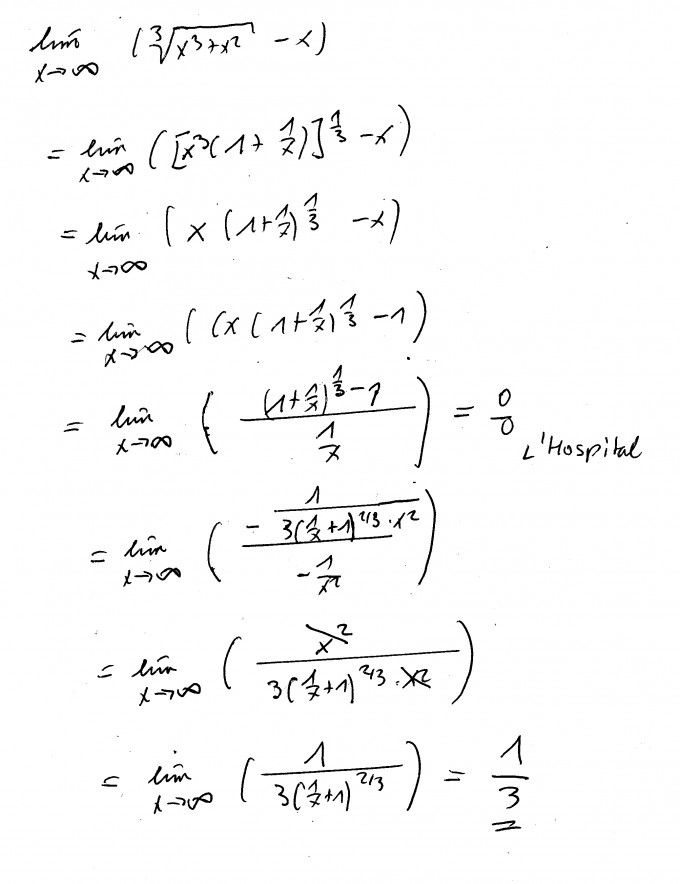 lim x→∞ (∛(x³+x²) - x)
= lim x→∞ ([x³(1+1/x)]^(1/3) - x)
= lim x→∞ (x(1+1/x)^(1/3) - x)
= lim x→∞ ((x(1+1/x)^(1/3) - 1)
= lim x→∞ (((1+1/x)^(1/3) - 1)/(1/x)) = 0/0 L'Hospital
= lim x→∞ ((- 1/(3(1/x+1)^(2/3)·x²))/(-1/x²))
= lim x→∞ (x²/(3(1/x+1)^(2/3)·x²))
= lim x→∞ (1/(3(1/x+1)^(2/3))) = 1/3